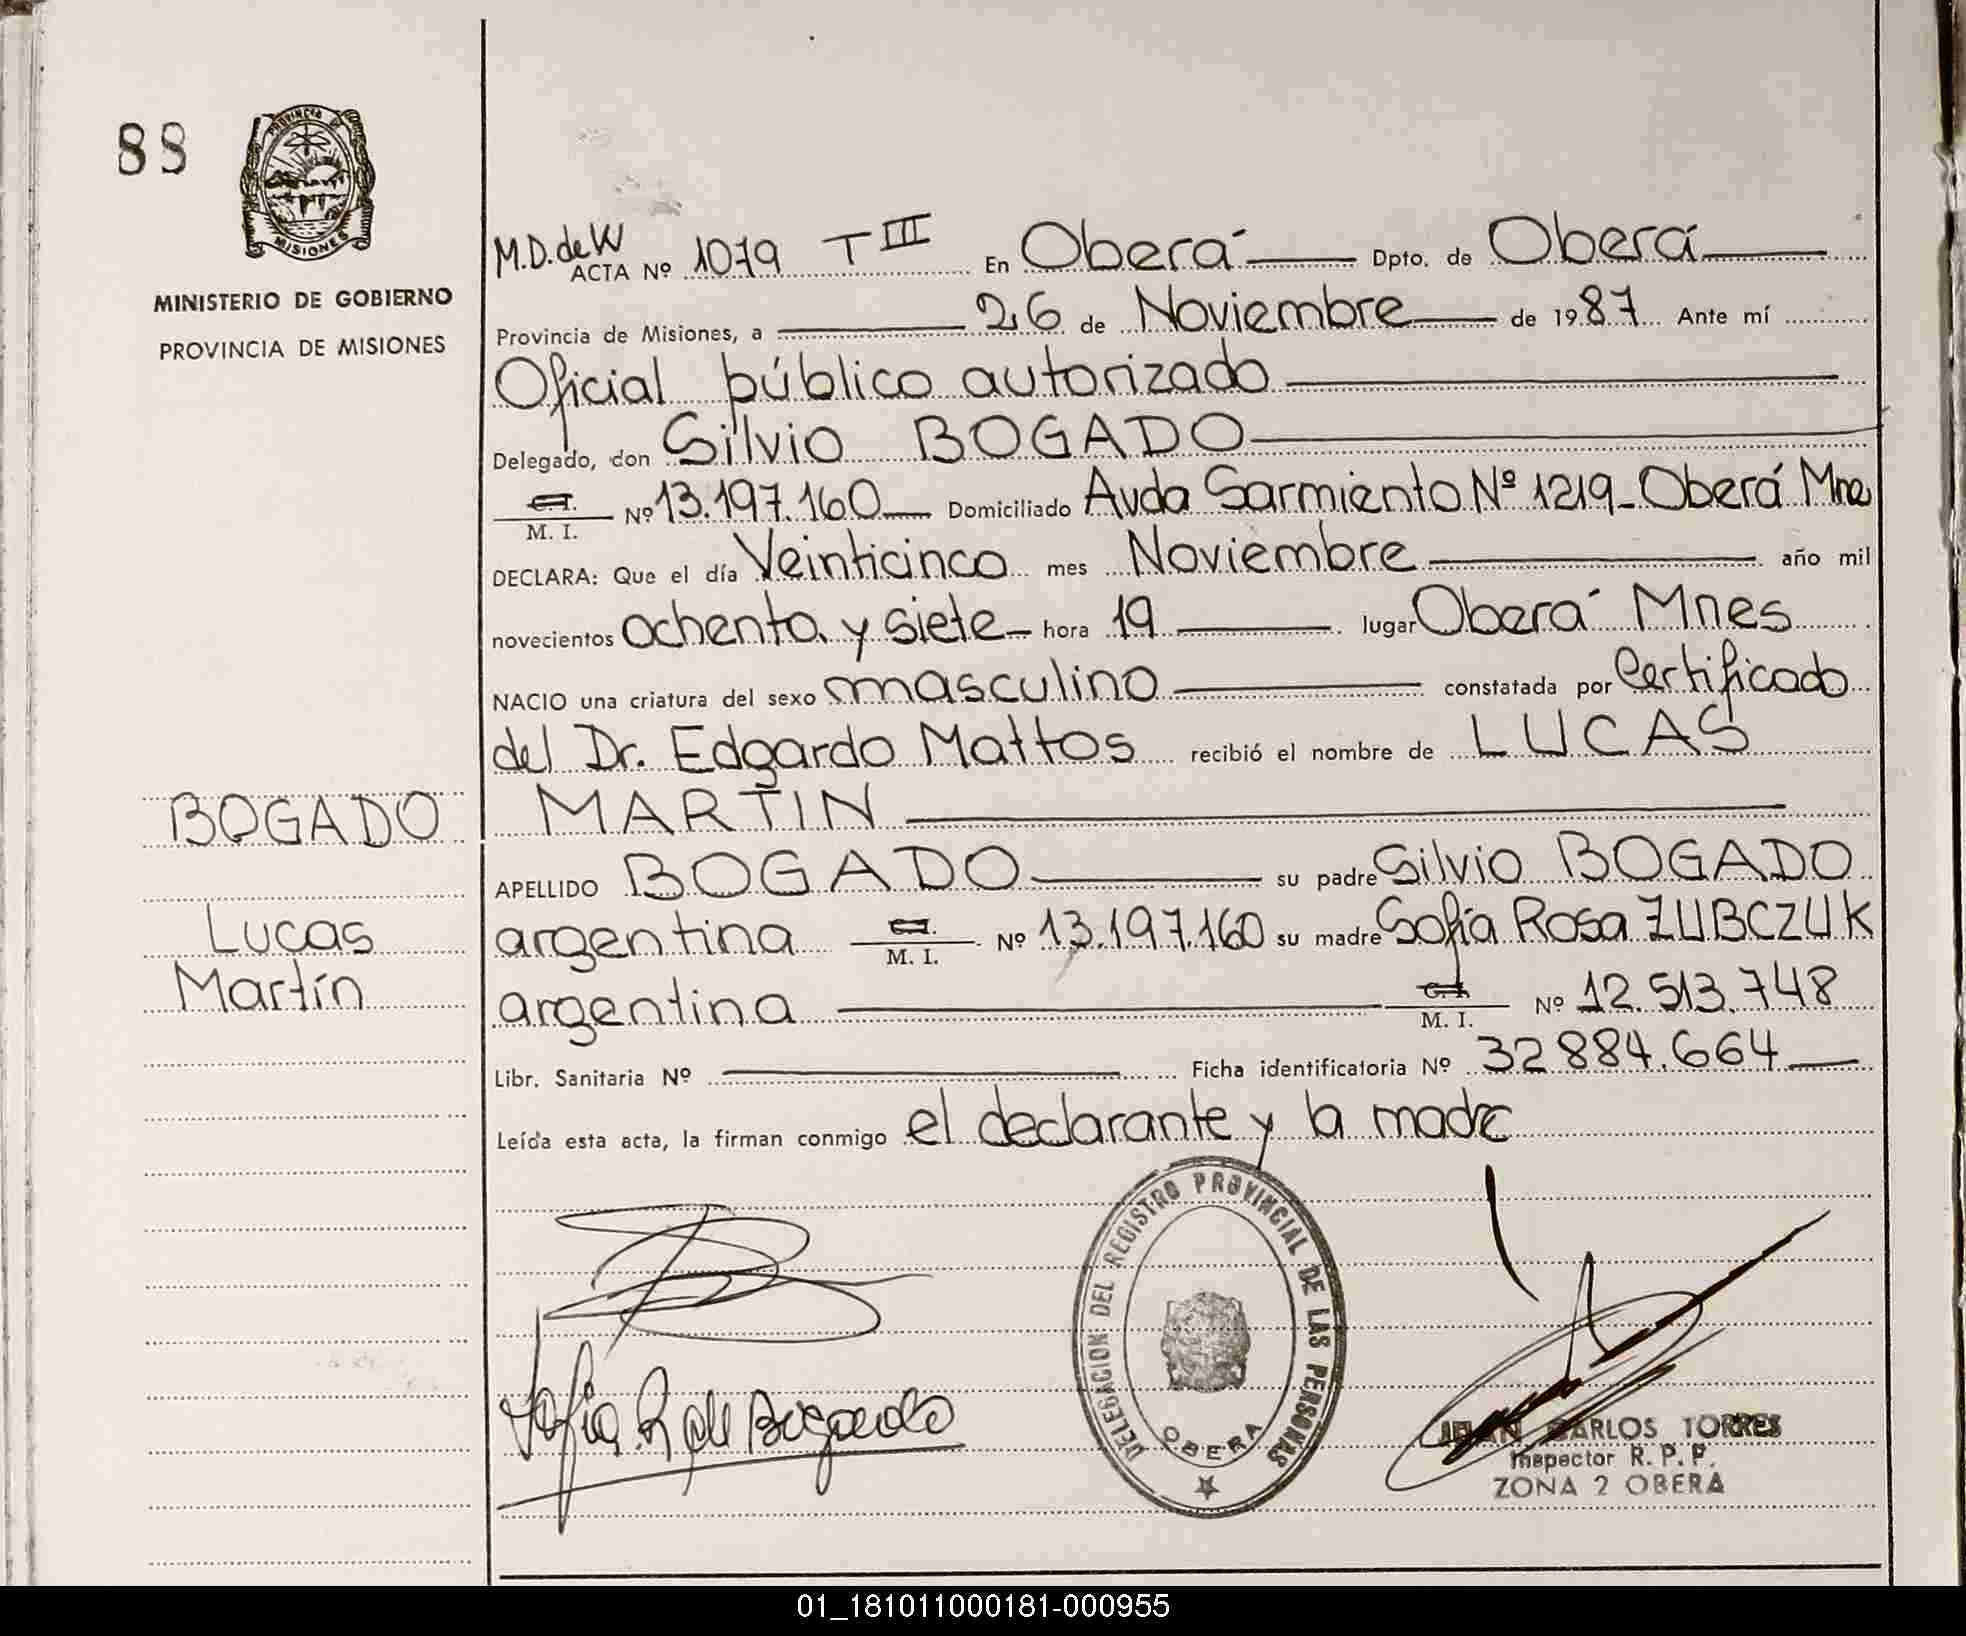 88
PROVINCIA DE
MISIONES
MINISTERIO DE GOBIERNO
PROVINCIA DE MISIONES
M.D.de W ACTA Nº 1079 T III En Oberá Dpto. de Oberá
Provincia de Misiones, a 26 de Noviembre de 1987 Ante mí
Oficial público autorizado
Delegado, don Silvio BOGADO
C.I. M. I. Nº 13.197.160 Domiciliado Avda Sarmiento Nº 1219-Oberá Mne
DECLARA: Que el día Veinticinco mes Noviembre año mil
novecientos ochenta y siete hora 19 lugar Oberá Mnes
NACIO una criatura del sexo masculino constatada por Certificado
del Dr. Edgardo Mattos recibió el nombre de LUCAS
MARTIN
BOGADO
APELLIDO BOGADO su padre Silvio BOGADO
Lucas
argentina C.I. M. I. Nº 13.197.160 su madre Sofía Rosa ZUBCZUK
Martín
argentina C.I. M. I. Nº 12.513.748
Libr. Sanitaria Nº Ficha identificatoria Nº 32884.664
Leída esta acta, la firman conmigo el declarante y la madre
DELEGACION DEL REGISTRO PROVINCIAL DE LAS PERSONAS
OBERA
Sofia R de Bogado
JUAN CARLOS TORRES
Inspector R. P. P.
ZONA 2 OBERA
01_181011000181-000955